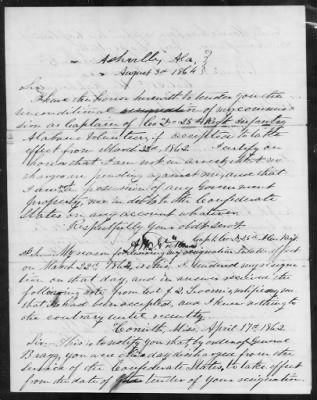 Ashville, Ala,
August 3d 1864
Sir
I have the honor herewith to tender you the
unconditional resignation of my commis-
sion as Captain of Co. D 25th Regt Infantry
Alabama Volunteers, if acception to take
effect from March 22d, 1862. I certify on
honor that I am not in arrest, that no
charges are pending against me, and that
I am not in possession of any Government
property, nor in debt to the Confederate
States on any account whatever.
Respectfully your obdt Servt
Capt Co D 25th Ala Regt
My reason for having my resignation take effect
on March 22d, 1862, is this, I tendered my resigna-
tion on that day, and in answer received the
following note from Col. J. Q. Loomis, notifying me
that it had been accepted, and I knew nothing to
the contrary until recently.
Corinth, Miss, April 17th, 1862.
Sir: This is to notify you that by order of General
Bragg, you are this day discharged from the
service of the Confederate States, to take effect
from the date of the tender of your resignation.